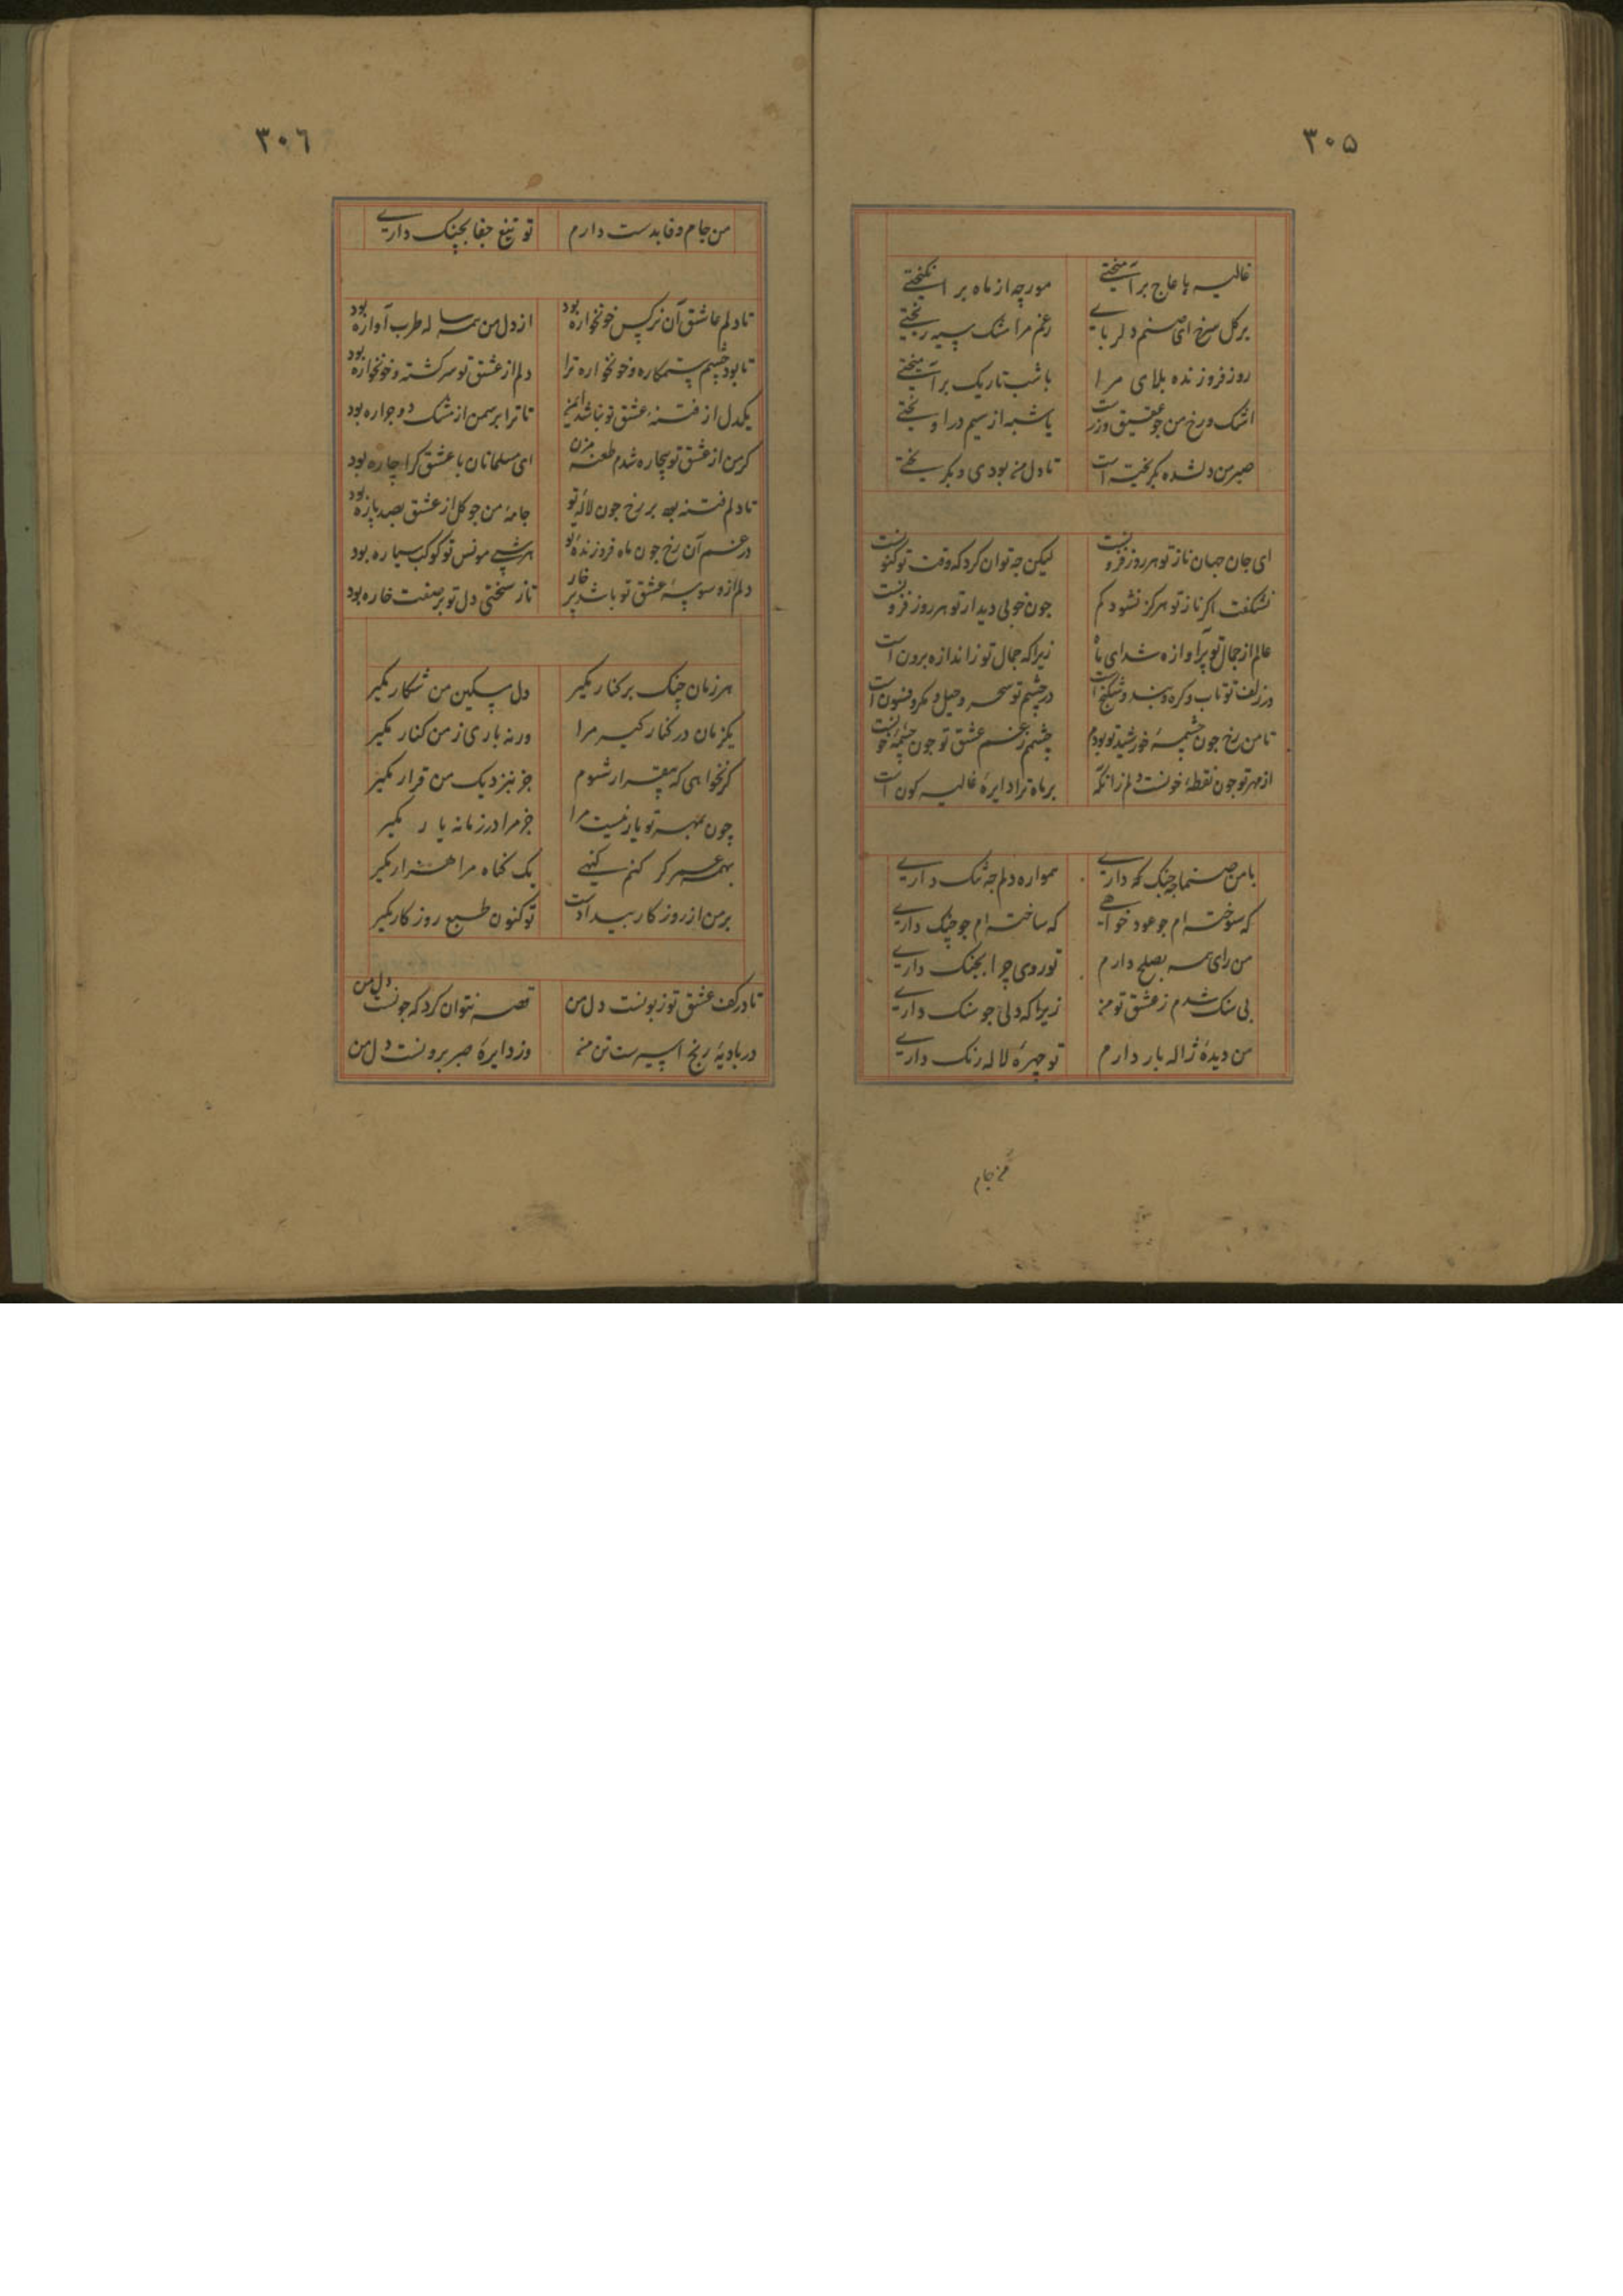 ۳۰۵
غالیه با عاج برآمیختی مورچه از ماه برانگیختی
برکل سرخ ای صنم دلربای رغم مرا مشک سیه ریختی
روز فروزنده بلای مرا با شب تاریک برآمیختی
اشک و رخ من جو عقیق وزرست یا شبه از سیم در اویختی
صبر من دلشده بکریختست تا دل من بودی و بکریختی
ای جان جهان ناز تو هر روز فزونست لیکن جه توان کرد که وقت تو کنونست
نشکفت اکر ناز تو هرکز نشود کم جون خوبی دیدار تو هر روز فزونست
عالم از جمال تو پرآوازه شد ای ماه زیرا که جمال تو ز اندازه برون است
در زلف تو تاب و کره و بند و شکنج است در چشم تو سحر و حیل و مکر و فسون است
تا من رخ جون چشمه خورشید تو بودم چشمم ز غم عشق تو جون چشمه خونست
از مهر تو جون نقطه خونست دلم زانکه بر ماه ترا دایره غالیه کون است
با من صنما چه جنک که داری همواره دلم چه تنک داری
که سوخته ام جو عود خواهی که ساخته ام جو چنک داری
من رای همه بصلح دارم تو روی چرا بجنک داری
بی سنک شدم ز عشق تو من زیرا که دلی جو سنک داری
من دیده ژاله بار دارم تو چهره لاله رنک داری
من جام
۳۰۶
من جام وفا بدست دارم تو تیغ جفا بچنک داری
تا دلم عاشق آن نرکس خونخواره بود از دل من همه ساله طرب آواره بود
تا بود چشم ستمکاره و خونخواره ترا دلم از عشق تو سرکشته و خونخواره بود
یکدل از فتنه عشق تو نباشد ایمن تا ترا بر سمن از مشک دو جراره بود
کر من از عشق تو بیچاره شدم طعنه مزن ای مسلمانان با عشق کرا چاره بود
تا دلم فتنه بود بر رخ جون لاله تو جامه من جو کل از عشق بصد پاره بود
در غم آن رخ جون ماه فروزنده تو هر شبی مونس تو کوکب سیاره بود
دلم از وسوسه عشق تو باشد پر خار تا ز سختی دل تو بر صفت خاره بود
هر زمان چنک بر کنار مکیر دل مسکین من شکار مکیر
یکزمان در کنار کیر مرا ور نه باری ز من کنار مکیر
کر نخواهی که بیقرار شوم جز بنزدیک من قرار مکیر
چون بمهر تو یار نیست مرا جز مرا در زمانه یار مکیر
بهمه عمر کر کنم کنهی یک کناه مرا هزار مکیر
بر من از روز کار بیدادست تو کنون طبع روز کار مکیر
تا در کف عشق تو زبونست دل من قصه نتوان کرد که جونست دل من
در بادیه رنج اسیرست تن من وز دایره صبر برونست دل من